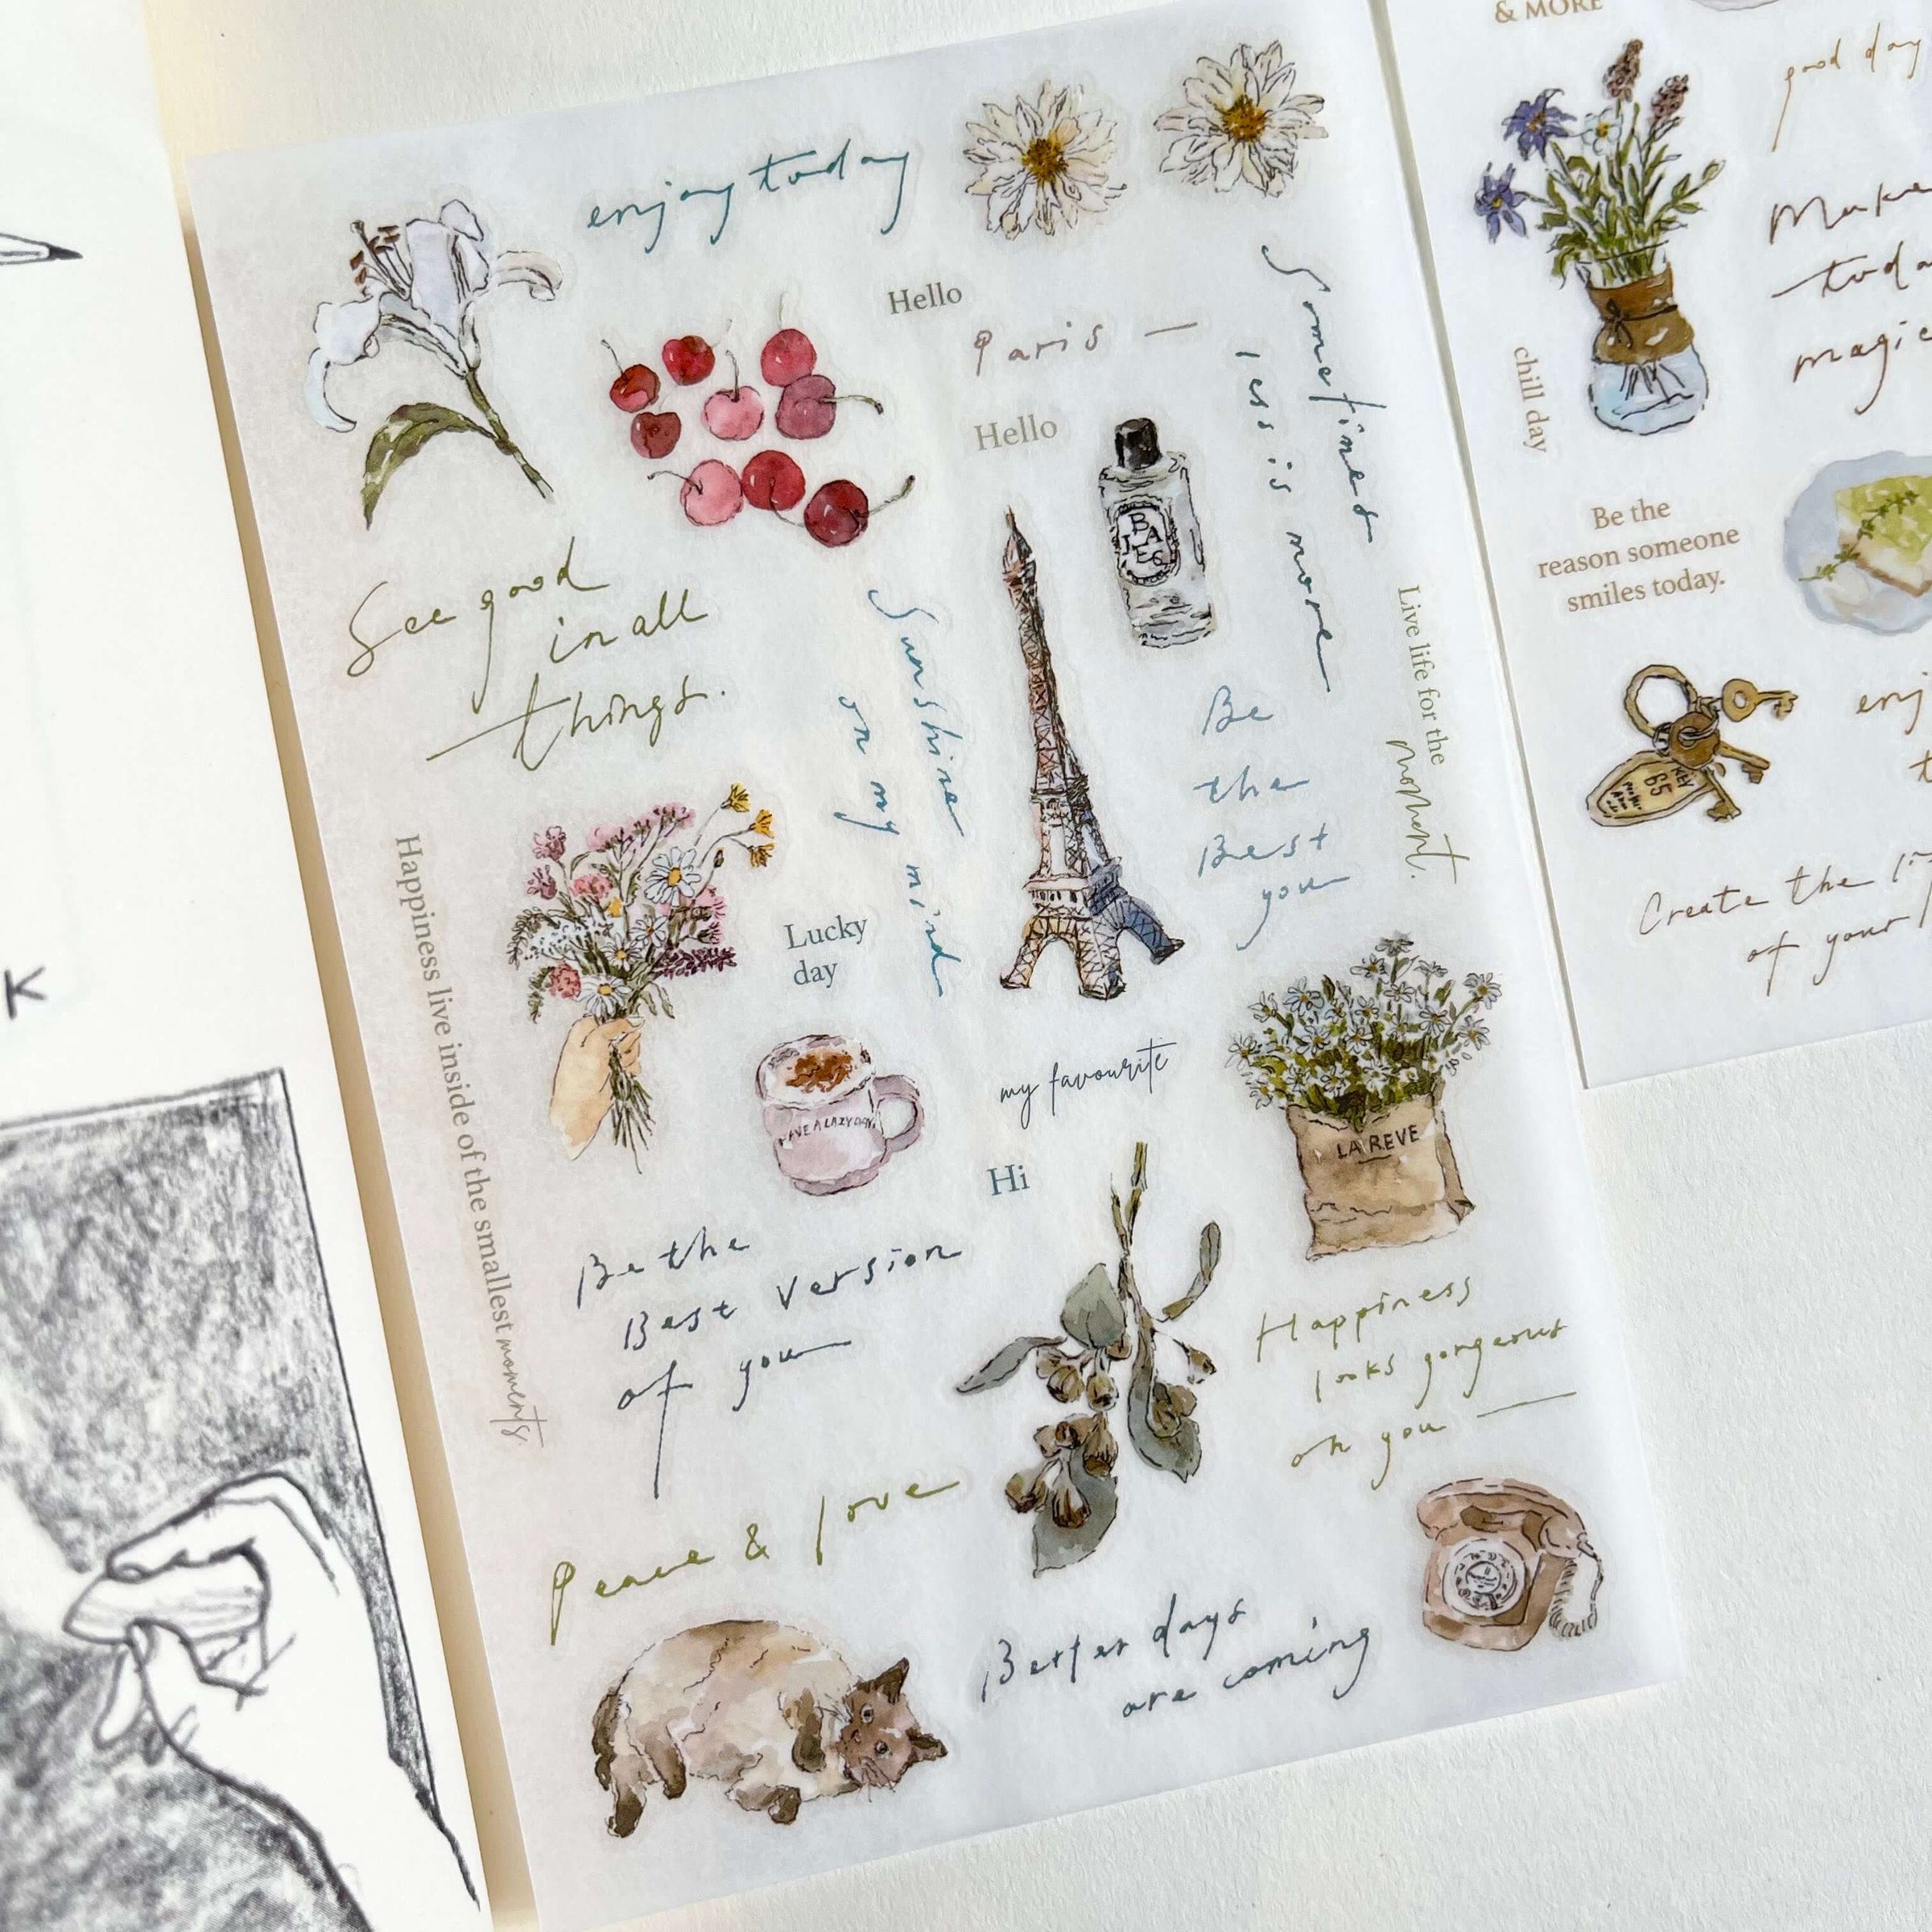 enjoy today
Hello
Paris —
Hello
Sometimes
less is more
BA
IES
See good
in all
things.
Sunshine
on my mind
Be
the
Best
you
Live life for the
moment.
Happiness live inside of the smallest moments.
Lucky
day
HAVE A LAZY DAY
my favourite
Hi
LA REVE
Be the
Best version
of you
Happiness
looks gorgeous
on you —
Peace & love
Better days
are coming
K
& MORE
good day
Make
magic
chill day
Be the
reason someone
smiles today.
KEY
65
Create the
of your